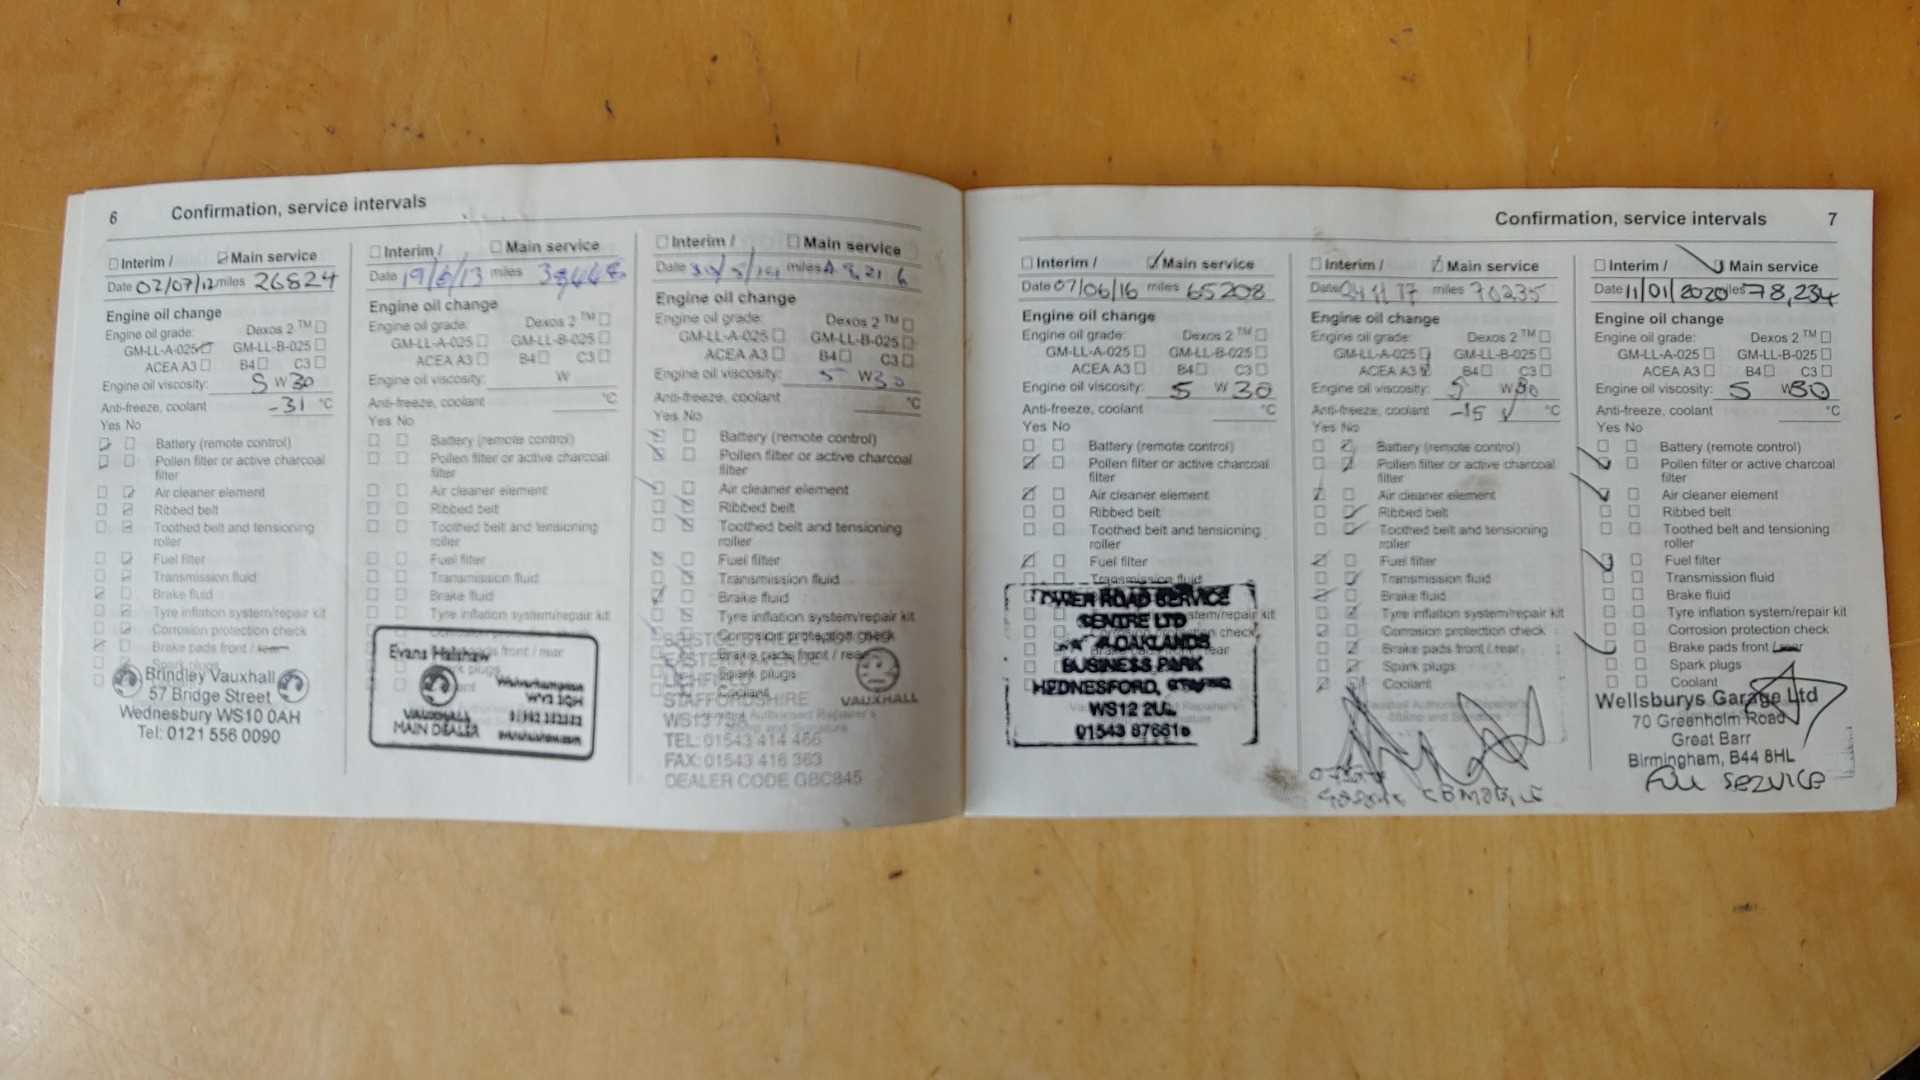 6 Confirmation, service intervals
Interim / Main service
Date 02/07/12 miles 26824
Engine oil change
Engine oil grade: Dexos 2 TM
GM-LL-A-025 GM-LL-B-025
ACEA A3 B4 C3
Engine oil viscosity: 5 W 30
Anti-freeze, coolant -31 °C
Yes No
Battery (remote control)
Pollen filter or active charcoal
filter
Air cleaner element
Ribbed belt
Toothed belt and tensioning
roller
Fuel filter
Transmission fluid
Brake fluid
Tyre inflation system/repair kit
Corrosion protection check
Brake pads front / rear
Spark plugs
Brindley Vauxhall
57 Bridge Street
Wednesbury WS10 0AH
Tel: 0121 556 0090
Interim / Main service
Date 19/6/13 miles
Engine oil change
Engine oil grade: Dexos 2 TM
GM-LL-A-025 GM-LL-B-025
ACEA A3 B4 C3
Engine oil viscosity: W
Anti-freeze, coolant °C
Yes No
Battery (remote control)
Pollen filter or active charcoal
filter
Air cleaner element
Ribbed belt
Toothed belt and tensioning
roller
Fuel filter
Transmission fluid
Brake fluid
Tyre inflation system/repair kit
front / rear
plugs
Evans Halshaw
VAUXHALL
MAIN DEALER
Wolverhampton
Interim / Main service
Date miles
Engine oil change
Engine oil grade: Dexos 2 TM
GM-LL-A-025 GM-LL-B-025
ACEA A3 B4 C3
Engine oil viscosity: 5 W 30
Anti-freeze, coolant °C
Yes No
Battery (remote control)
Pollen filter or active charcoal
filter
Air cleaner element
Ribbed belt
Toothed belt and tensioning
roller
Fuel filter
Transmission fluid
Brake fluid
Tyre inflation system/repair kit
Corrosion protection check
Brake pads front / rear
Spark plugs
Coolant
EASTERN AVENUE
LICHFIELD
STAFFORDSHIRE
VAUXHALL
TEL: 01543 414 466
FAX: 01543 416 363
DEALER CODE GBC845
Confirmation, service intervals 7
Interim / Main service
Date 07/06/16 miles 65208
Engine oil change
Engine oil grade: Dexos 2 TM
GM-LL-A-025 GM-LL-B-025
ACEA A3 B4 C3
Engine oil viscosity: 5 W 30
Anti-freeze, coolant °C
Yes No
Battery (remote control)
Pollen filter or active charcoal
filter
Air cleaner element
Ribbed belt
Toothed belt and tensioning
roller
Fuel filter
Transmission fluid
ROAD SERVICE
CENTRE LTD
OAKLANDS
BUSINESS PARK
HEDNESFORD, STAFFS
WS12 2UL
Interim / Main service
Date 24 11 17 miles 70235
Engine oil change
Engine oil grade: Dexos 2 TM
GM-LL-A-025 GM-LL-B-025
ACEA A3 B4 C3
Engine oil viscosity: 5 W 30
Anti-freeze, coolant -15 °C
Yes No
Battery (remote control)
Pollen filter or active charcoal
filter
Air cleaner element
Ribbed belt
Toothed belt and tensioning
roller
Fuel filter
Transmission fluid
Brake fluid
Tyre inflation system/repair kit
Corrosion protection check
Brake pads front / rear
Spark plugs
Coolant
Interim / Main service
Date 11/01/2020 miles 78,234
Engine oil change
Engine oil grade: Dexos 2 TM
GM-LL-A-025 GM-LL-B-025
ACEA A3 B4 C3
Engine oil viscosity: 5 W 30
Anti-freeze, coolant °C
Yes No
Battery (remote control)
Pollen filter or active charcoal
filter
Air cleaner element
Ribbed belt
Toothed belt and tensioning
roller
Fuel filter
Transmission fluid
Brake fluid
Tyre inflation system/repair kit
Corrosion protection check
Brake pads front / rear
Spark plugs
Coolant
Wellsburys Garage Ltd
70 Greenholm Road
Great Barr
Birmingham, B44 8HL
FULL SERVICE